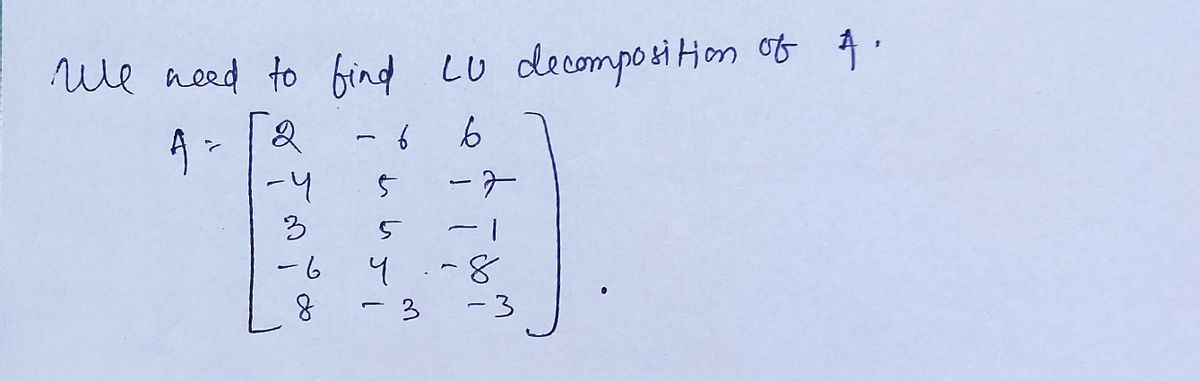 We need to find LU decomposition of A.
A = [2 -6 6
-4 5 -7
3 5 -1
-6 4 -8
8 -3 -3].